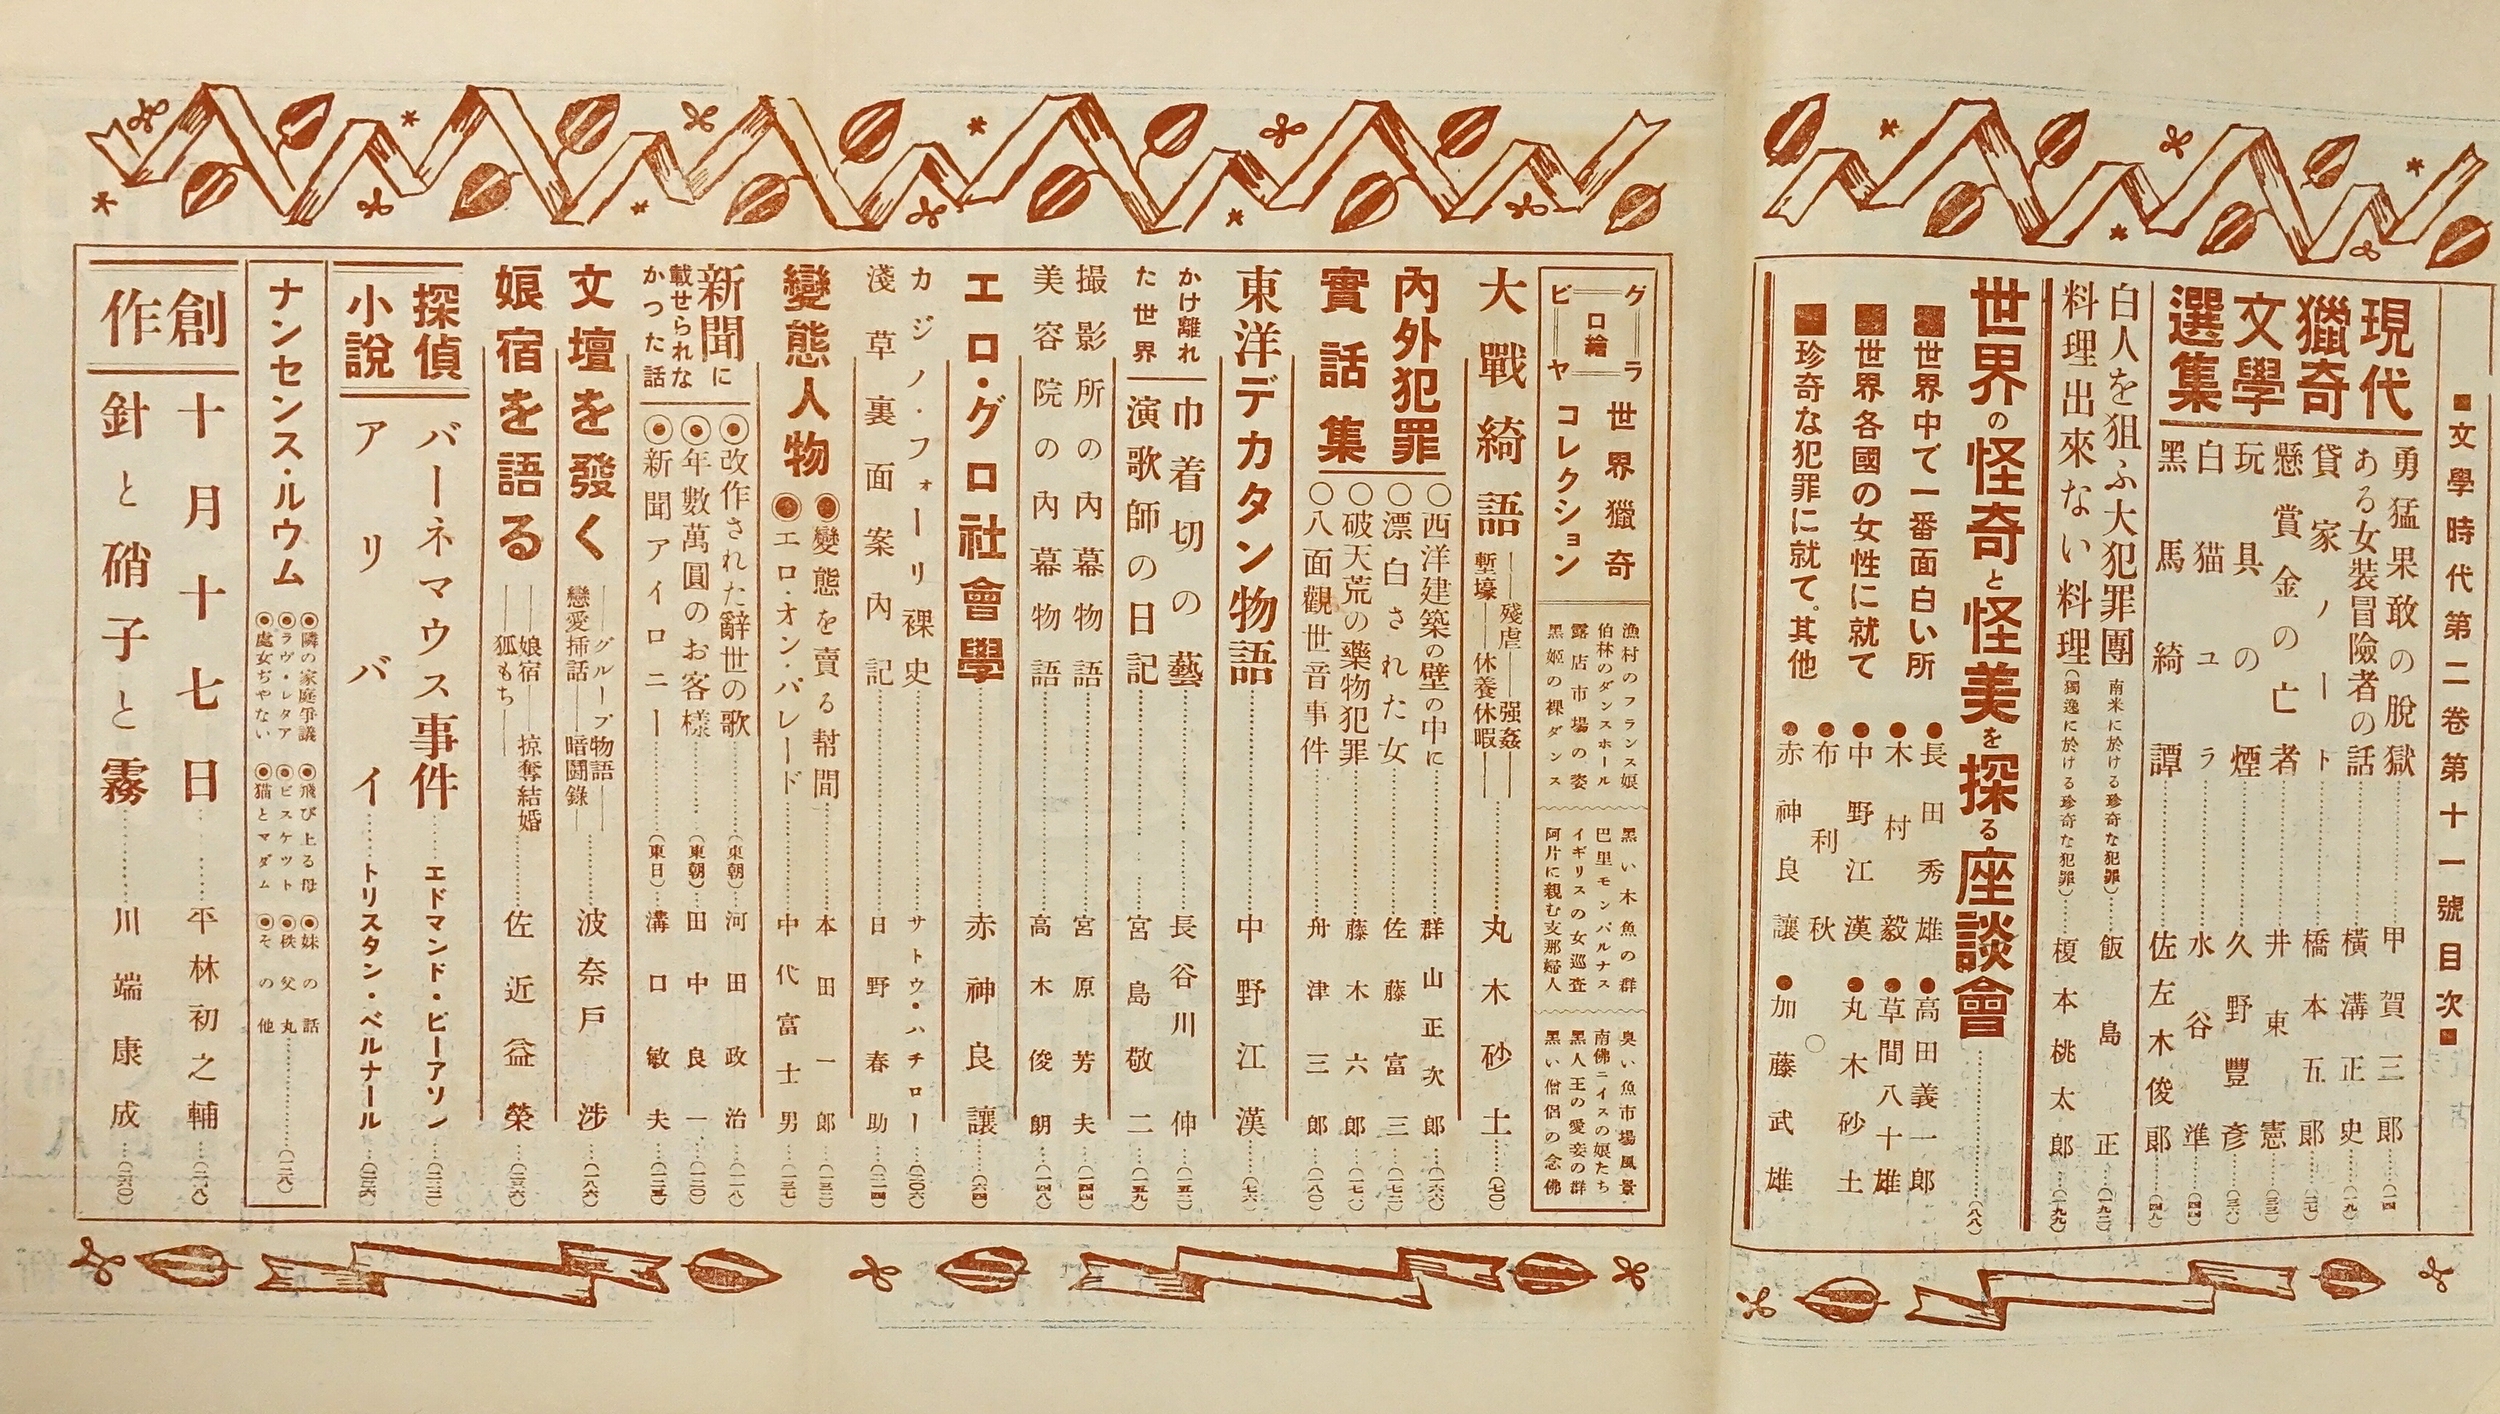 ■文學時代第二卷第十一號目次■
現代
獵奇
文學
選集
勇猛果敢の脫獄……甲賀三郎……(一四
ある女裝冒險者の話……橫溝正史……(一九)
貸家ノート……橋本五郎……(二七)
懸賞金の亡者……井東憲……(三三)
玩具の煙……久野豐彥……(三六)
白猫ユラ……水谷準……(四四)
黑馬綺譚……佐左木俊郎……(四八)
白人を狙ふ大犯罪團(南米に於ける珍奇な犯罪)……飯島正……(一九二)
料理出來ない料理(獨逸に於ける珍奇な犯罪)……榎本桃太郎……(一九九)
世界の怪奇と怪美を探る座談會……(八八)
■世界中で一番面白い所
■世界各國の女性に就て
■珍奇な犯罪に就て。其他
●長田秀雄●高田義一郎
●木村毅●草間八十雄
●中野江漢●丸木砂土
●布利秋○
●赤神良讓●加藤武雄
口繪
グラビヤ
世界獵奇
コレクション
漁村のフランス娘
伯林のダンスホール
露店市場の姿
黑姬の裸ダンス
黑い木魚の群
巴里モンパルナス
イギリスの女巡査
阿片に親む支那婦人
臭い魚市場風景
南佛ニイスの娘たち
黑人王の愛妾の群
黑い僧侶の念佛
大戰綺語
――殘虐――强姦――
塹壕――休養休暇――
……丸木砂土……(七〇)
內外犯罪
實話集
○西洋建築の壁の中に……群山正次郎……(一六六)
○漂白された女……佐藤富三郎……(一七二)
○破天荒の藥物犯罪……藤木六郎……(一七六)
○八面觀世音事件……舟津三郎……(一八〇)
東洋デカタン物語……中野江漢……(七六)
かけ離れ
た世界
巾着切の藝……長谷川伸……(一五二)
演歌師の日記……宮島敬二……(一五九)
撮影所の內幕物語……宮原芳夫……(一四四)
美容院の內幕物語……高木俊朗……(一四八)
エロ・グロ社會學……赤神良讓……(六四)
カジノ・フォーリ裸史……サトウ・ハチロー……(二〇六)
淺草裏面案內記……日野春助……(二一四)
變態人物
●變態を賣る幇間……本田一郎……(一三二)
◉エロ・オン・パレード……中代富士男……(一三七)
新聞に
載せられな
かつた話
◉改作された辭世の歌……(東朝)……河田政治……(一一八)
◉年數萬圓のお客樣……(東朝)……田中良一……(一二〇)
◉新聞アイロニー……(東日)……溝口敏夫……(一二五)
文壇を發く
――グループ物語――
戀愛揷話――暗鬪錄――
……波奈戶涉……(一八六)
娘宿を語る
――娘宿――掠奪結婚
――狐もち――
……佐近益榮……(二三六)
探偵
小說
バーネマウス事件……エドマンド・ピーアソン……(二二二)
アリバイ……トリスタン・ベルナール……(二二六)
ナンセンス・ルウム
◉隣の家庭爭議◉飛び上る母◉妹の話
◉ラヴ・レタア◉ビスケツト◉秩父丸
◉處女ぢやない◉猫とマダム◉その他
……(一二八)
創作
十月十七日……平林初之輔……(二四八)
針と硝子と霧……川端康成……(二六〇)